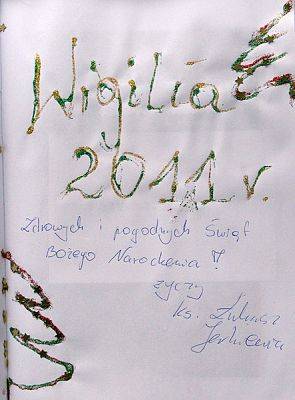 Wigilia
2011 r.
Zdrowych i pogodnych Świąt
Bożego Narodzenia!
życzy
ks. Łukasz